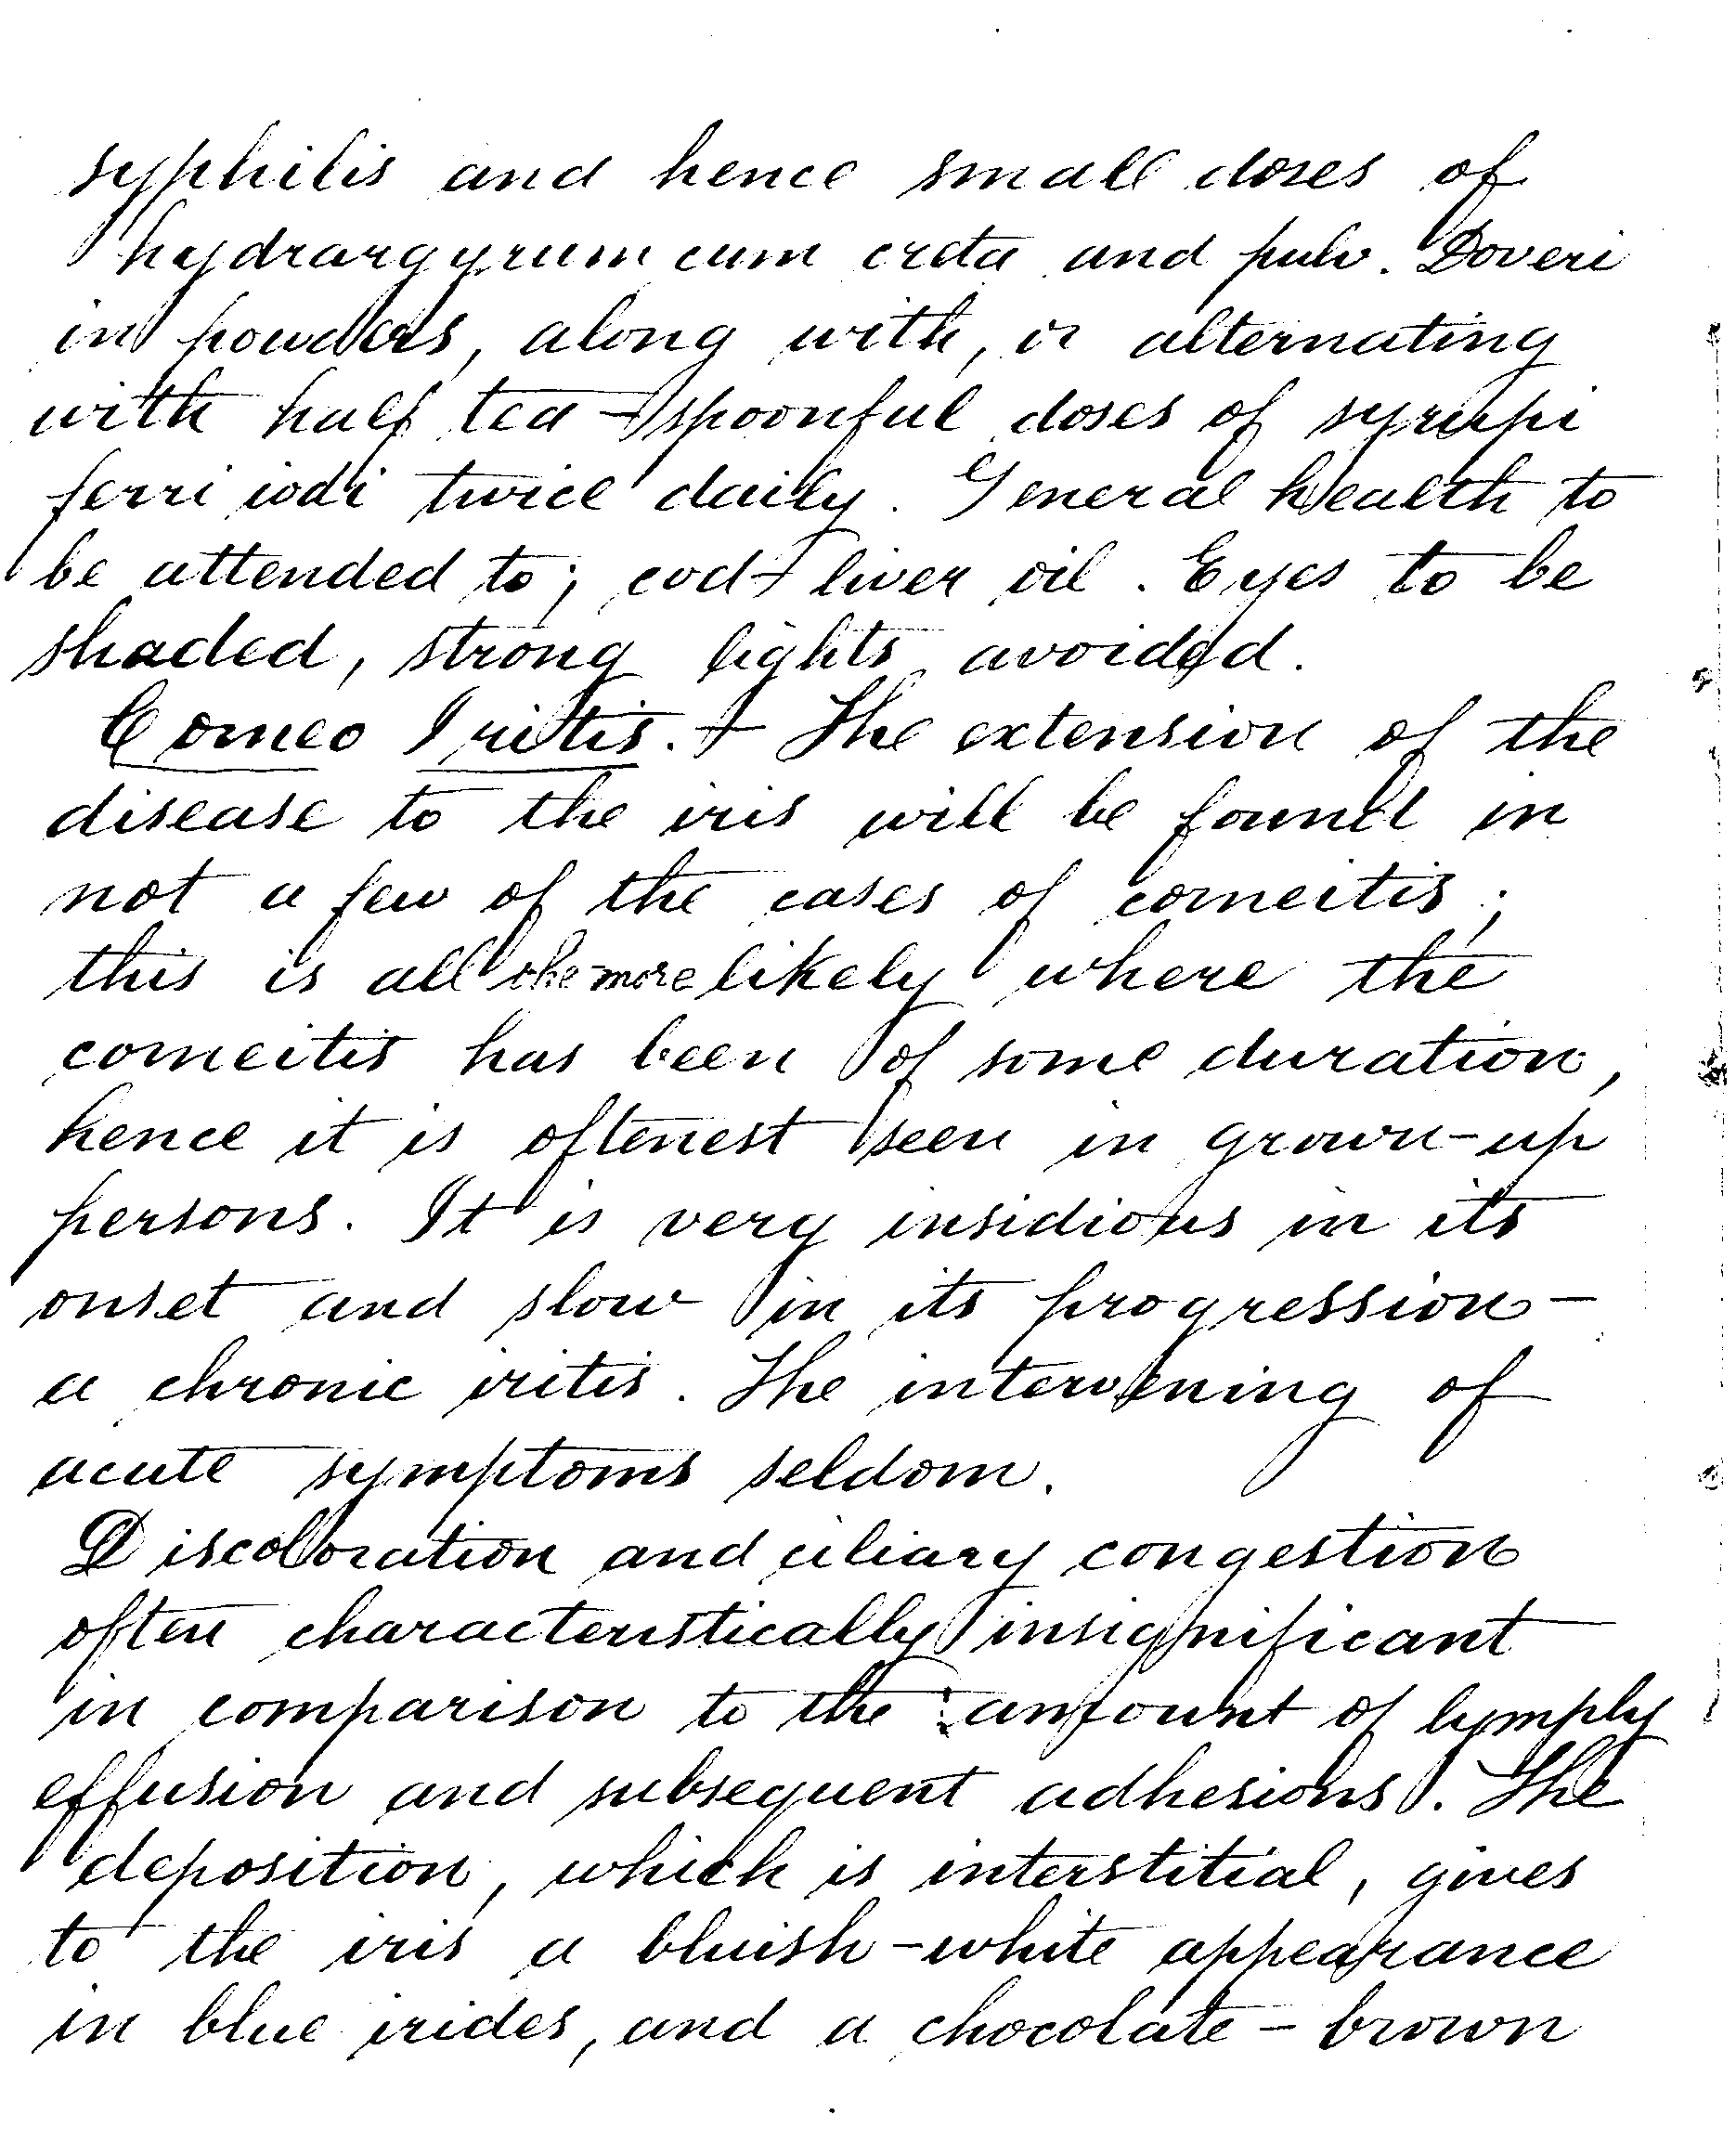 syphilis and hence small doses of
hydrargyrum cum creta and pulv. Doveri
in powders, along with, or alternating
with half tea-spoonful doses of syrupi
ferri iodi twice daily. General health to
be attended to; cod-liver oil. Eyes to be
shaded, strong lights avoided.
Corneo Iritis. - The extension of the
disease to the iris will be found in
not a few of the cases of corneitis;
this is all the more likely where the
corneitis has been of some duration,
hence it is oftenest seen in grown-up
persons. It is very insidious in its
onset and slow in its progression -
a chronic iritis. The intervening of
acute symptoms seldom.
Discoloration and ciliary congestion
often characteristically insignificant
in comparison to the amount of lymply
effusion and subsequent adhesions. The
deposition, which is interstitial, gives
to the iris a bluish-white appearance
in blue irides, and a chocolate-brown